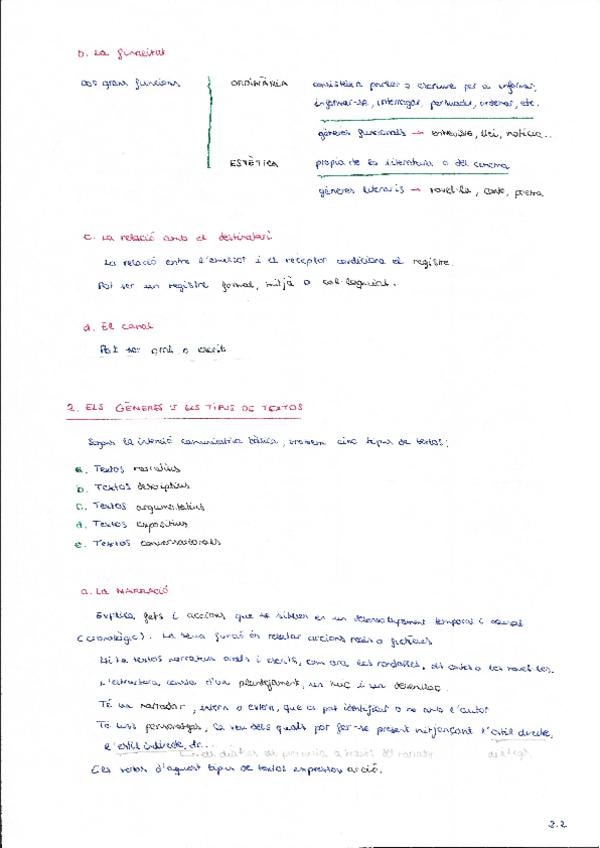 b. La funcitat
Dos grans funcions
ORDINÀRIA consisteix a parlar o escriure per a informar,
informar-se, interrogar, persuadir, ordenar, etc.
gèneres funcionals → entrevista, llei, notícia...
ESTÈTICA pròpia de la literatura o del cinema
gèneres literaris → novel·la, conte, poema
c. La relació amb el destinatari
La relació entre l'emissor i el receptor condiciona el registre.
Pot ser un registre formal, mitjà o col·loquial.
d. El canal
Pot ser oral o escrit
2. ELS GÈNERES I ELS TIPUS DE TEXTOS
Segons la intenció comunicativa bàsica, trobem cinc tipus de textos:
a. Textos narratius
b. Textos descriptius
c. Textos argumentatius
d. Textos expositius
e. Textos conversacionals
a. LA NARRACIÓ
Explica fets i accions que se situen en un desenvolupament temporal i causal
(cronològic). La seua funció és relatar accions reals o fictícies
Hi ha textos narratius orals i escrits, com ara les rondalles, els contes o les novel·les.
L'estructura consta d'un plantejament, un nuc i un desenllaç.
Té un narrador, intern o extern, que es pot identificar o no amb l'autor
Té uns personatges, la veu dels quals pot fer-se present mitjançant l'estil directe,
l'estil indirecte, etc... diàlegs
a través del narrador
Els verbs d'aquest tipus de textos expressen acció.
2.2